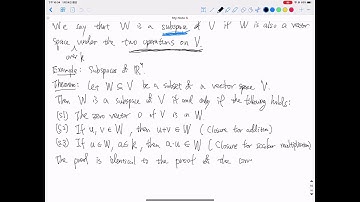 We say that W is a subspace of V if W is also a vector
space under the two operations on V.
over k
Example: Subspaces of ℝ⁴.
Theorem: Let W ⊆ V be a subset of a vector space V.
Then W is a subspace of V if and only if the following holds:
(S1) The zero vector 0 of V is in W
(S2) If u, v ∈ W, then u+v ∈ W (Closure for addition)
(S3) If u ∈ W, a ∈ k, then a·u ∈ W (Closure for scalar multiplication)
The proof is identical to the proof of the corr